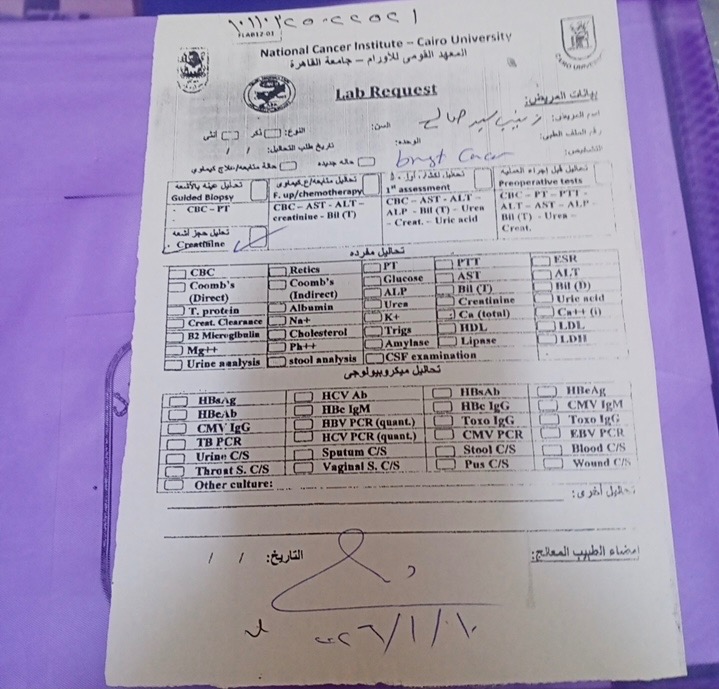 ١٠١١٠٢٢٥٠٢٢٥٢١
FLAB12-01
National Cancer Institute – Cairo University
المعهد القومى للأورام – جامعة القاهرة
CAIRO UNIVERSITY
Lab Request
بيانات المريض:
اسم المريض: زينب سيد صالح
السن: النوع: ذكر أنثى
رقم الملف الطبى:
الوحدة: تاريخ طلب التحاليل: / /
التشخيص:
حالة جديدة حالة متابعة/علاج كيماوى
تحاليل عينه بالأشعه
Guided Biopsy
- CBC – PT
F. up/chemotherapy
CBC – AST - ALT – creatinine - Bil (T)
1st assessment
CBC - AST - ALT – ALP - Bil (T) – Urea – Creat. – Uric acid
تحاليل قبل إجراء العملية
Preoperative tests
CBC - PT – PTT - ALT – AST – ALP – Bil (T) - Urea – Creat.
تحاليل حجز أشعه
- Creatinine
تحاليل مفرده
CBC Retics PT PTT ESR
Coomb's (Direct) Coomb's (Indirect) Glucose AST ALT
ALP Bil (T) Bil (D)
T. protein Albumin Urea Creatinine Uric acid
Creat. Clearance Na+ K+ Ca (total) Ca++ (i)
B2 Microglbulin Cholesterol Trigs HDL LDL
Mg++ Ph++ Amylase Lipase LDH
Urine analysis stool analysis CSF examination
تحاليل ميكروبيولوجى
HBsAg HCV Ab HBsAb HBeAg
HBeAb HBc IgM HBc IgG CMV IgM
CMV IgG HBV PCR (quant.) Toxo IgG Toxo IgG
TB PCR HCV PCR (quant.) CMV PCR EBV PCR
Urine C/S Sputum C/S Stool C/S Blood C/S
Throat S. C/S Vaginal S. C/S Pus C/S Wound C/S
Other culture:
تحاليل أخرى:
إمضاء الطبيب المعالج: التاريخ: / /